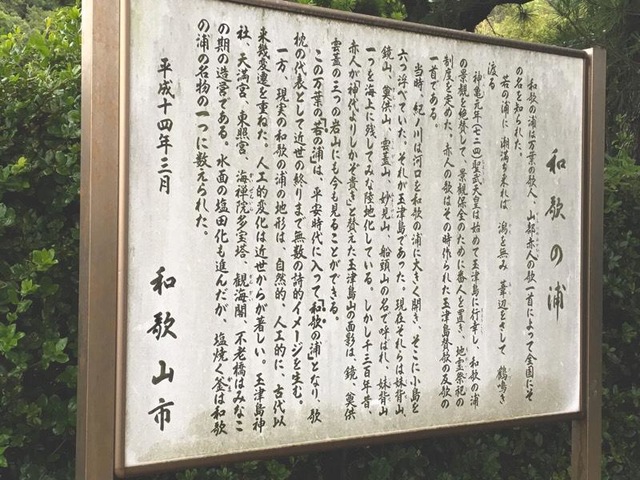 和歌の浦
和歌の浦は万葉の歌人、山部赤人の歌一首によって全国にそ
の名を知られた。
若の浦に 潮満ち来れば 潟を無み 葦辺をさして 鶴鳴き
渡る
神亀元年(七二四)聖武天皇は始めて玉津島に行幸し、和歌の浦
の景観を絶賛して、景観保全のために番人を置き、地霊祭祀の
制度を定めた。赤人の歌はその時作られた玉津島賛歌の反歌の
一首である。
当時、紀ノ川は河口を和歌の浦に大きく開き、そこに小島を
六つ浮べていた。それが玉津島であった。現在それらは妹背山、
鏡山、奠供山、雲蓋山、妙見山、船頭山の名で呼ばれ、妹背山
一つを海上に残してみな陸地化している。しかし千三百年昔、
赤人が「神代よりしかぞ貴き」と賛えた玉津島山の面影は、鏡、奠供
雲蓋の三つの岩山にも今も見ることができる。
この万葉の「若の浦」は、平安時代に入って「和歌の浦」となり、歌
枕の代表として近世の終りまで無数の詩的イメージを生む。
一方、現実の和歌の浦の地形は、自然的、人工的に、古代以
来幾変遷を重ねた。人工的変化は近世からが著しい。玉津島神
社、天満宮、東照宮、海禅院多宝塔、観海閣、不老橋はみなこ
の期の造営である。水面の塩田化も進んだが、塩焼く釜は和歌
の浦の名物の一つに数えられた。
平成十四年三月
和歌山市